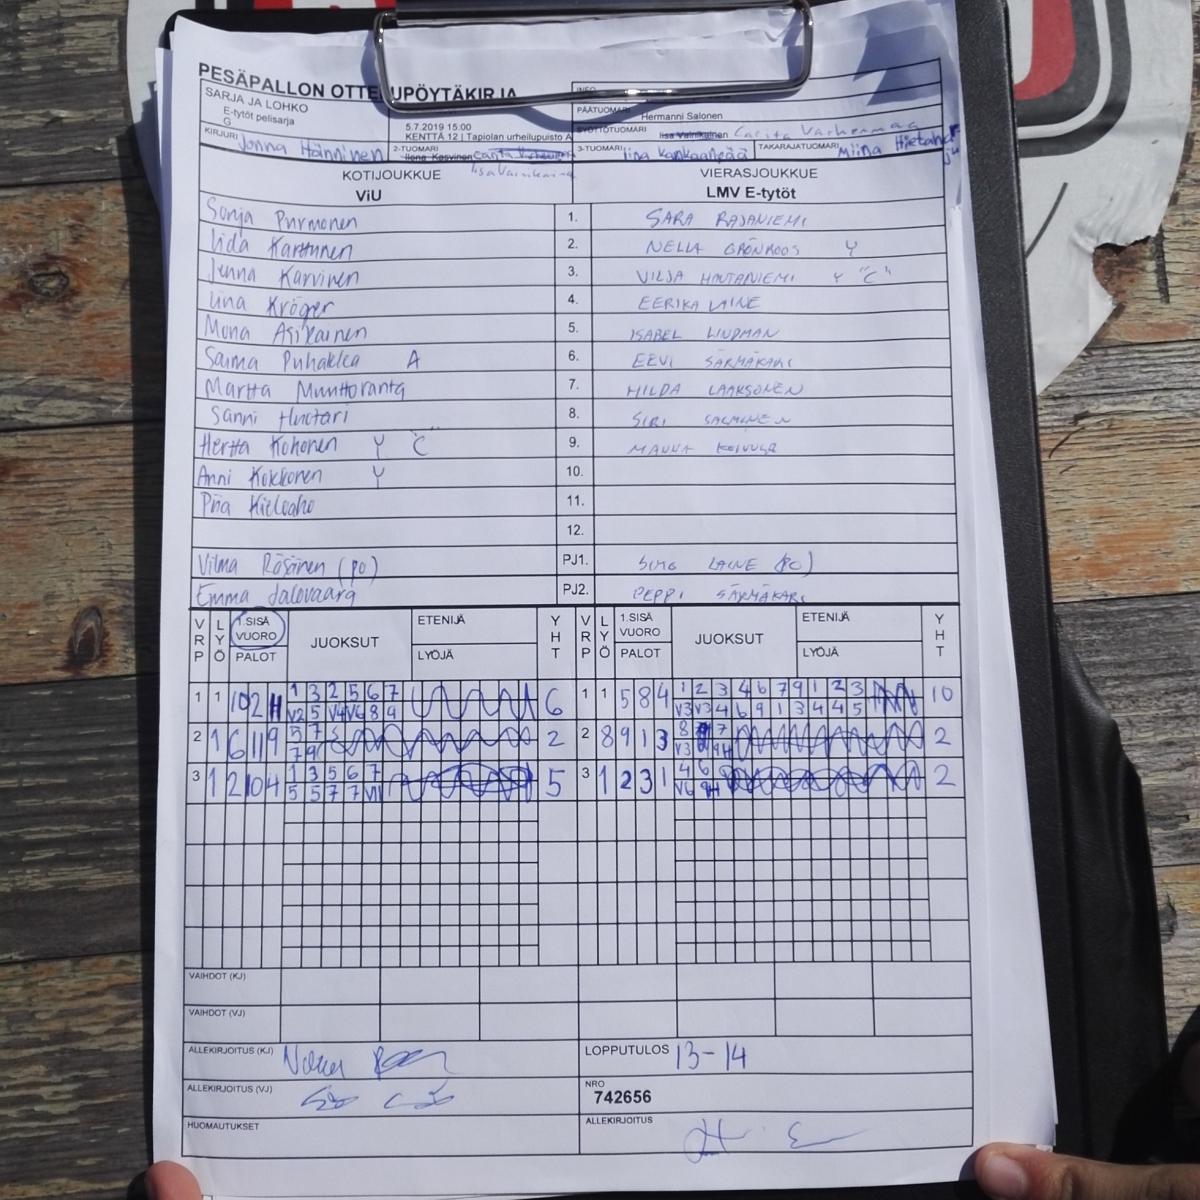 PESÄPALLON OTTELUPÖYTÄKIRJA
SARJA JA LOHKO
E-tytöt pelisarja
G
5.7.2019 15:00
KENTTÄ 12 | Tapiolan urheilupuisto A
INFO
PÄÄTUOMARI Hermanni Salonen
SYÖTTÖTUOMARI Iisa Vainikainen Carita Varhemaa
KIRJURI Jonna Hänninen
2-TUOMARI
Iisa Vainikainen
3-TUOMARI Iina Kankaanpää
TAKARAJATUOMARI Miina Hietaharju
KOTIJOUKKUE VIERASJOUKKUE
ViU LMV E-tytöt
Sonja Purmonen 1. SARA RAJANIEMI
Iida Karttunen 2. NELLA GRÖNROOS Y
Jenna Karvinen 3. VILJA HINTANIEMI Y "C"
Iina Kröger 4. EERIKA LAINE
Mona Asikainen 5. ISABEL LINDMAN
Saima Puhakka A 6. EEVI SÄRMÄKARI
Martta Munttoranta 7. HILDA LAAKSONEN
Sanni Huotari 8. SIRI SALMINEN
Hertta Kohonen Y "C" 9. MANNA KOIVULA
Anni Kokkonen Y 10.
Piia Kieloaho 11.
12.
Vilma Räsänen (PO) PJ1. LAINE (PO)
Emma Jalovaara PJ2. PEPPI SÄRMÄKARI
VRP LYÖ 1.SISÄ VUORO PALOT JUOKSUT ETENIJÄ LYÖJÄ YHT VRP LYÖ 1.SISÄ VUORO PALOT JUOKSUT ETENIJÄ LYÖJÄ YHT
1 1 10 2 11 1 3 2 5 6 7 6 1 1 5 8 4 1 2 3 4 6 7 9 1 2 3 10
V2 5 V4 V6 8 9 V3 V3 4 6 9 1 3 4 4 5
2 1 6 11 9 5 7 2 2 8 9 1 3 8 7 2
7 9 V3
3 1 2 10 4 1 3 5 6 7 5 3 1 2 3 1 4 6 2
5 5 7 7 V11 V6
VAIHDOT (KJ)
VAIHDOT (VJ)
ALLEKIRJOITUS (KJ) LOPPUTULOS 13-14
ALLEKIRJOITUS (VJ) NRO
742656
HUOMAUTUKSET ALLEKIRJOITUS